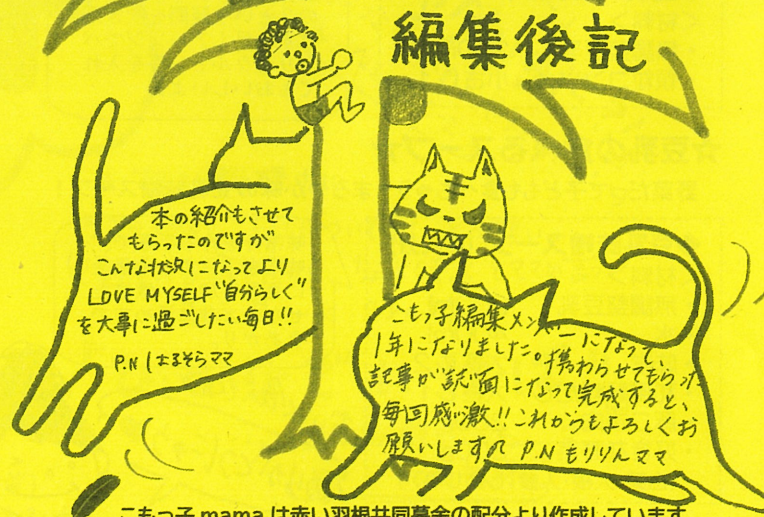 編集後記
本の紹介もさせて
もらったのですが
こんな状況になってより
LOVE MYSELF "自分らしく"
を大事に過ごしたい毎日!!
P.N はるそらママ
こもっ子編集メンバーになって、
1年になりました。携わらせてもらった
記事が誌面になって完成すると、
毎回感激!!これからもよろしくお
願いします P.N もりりんママ
こもっ子 mama は赤い羽根共同募金の配分より作成しています